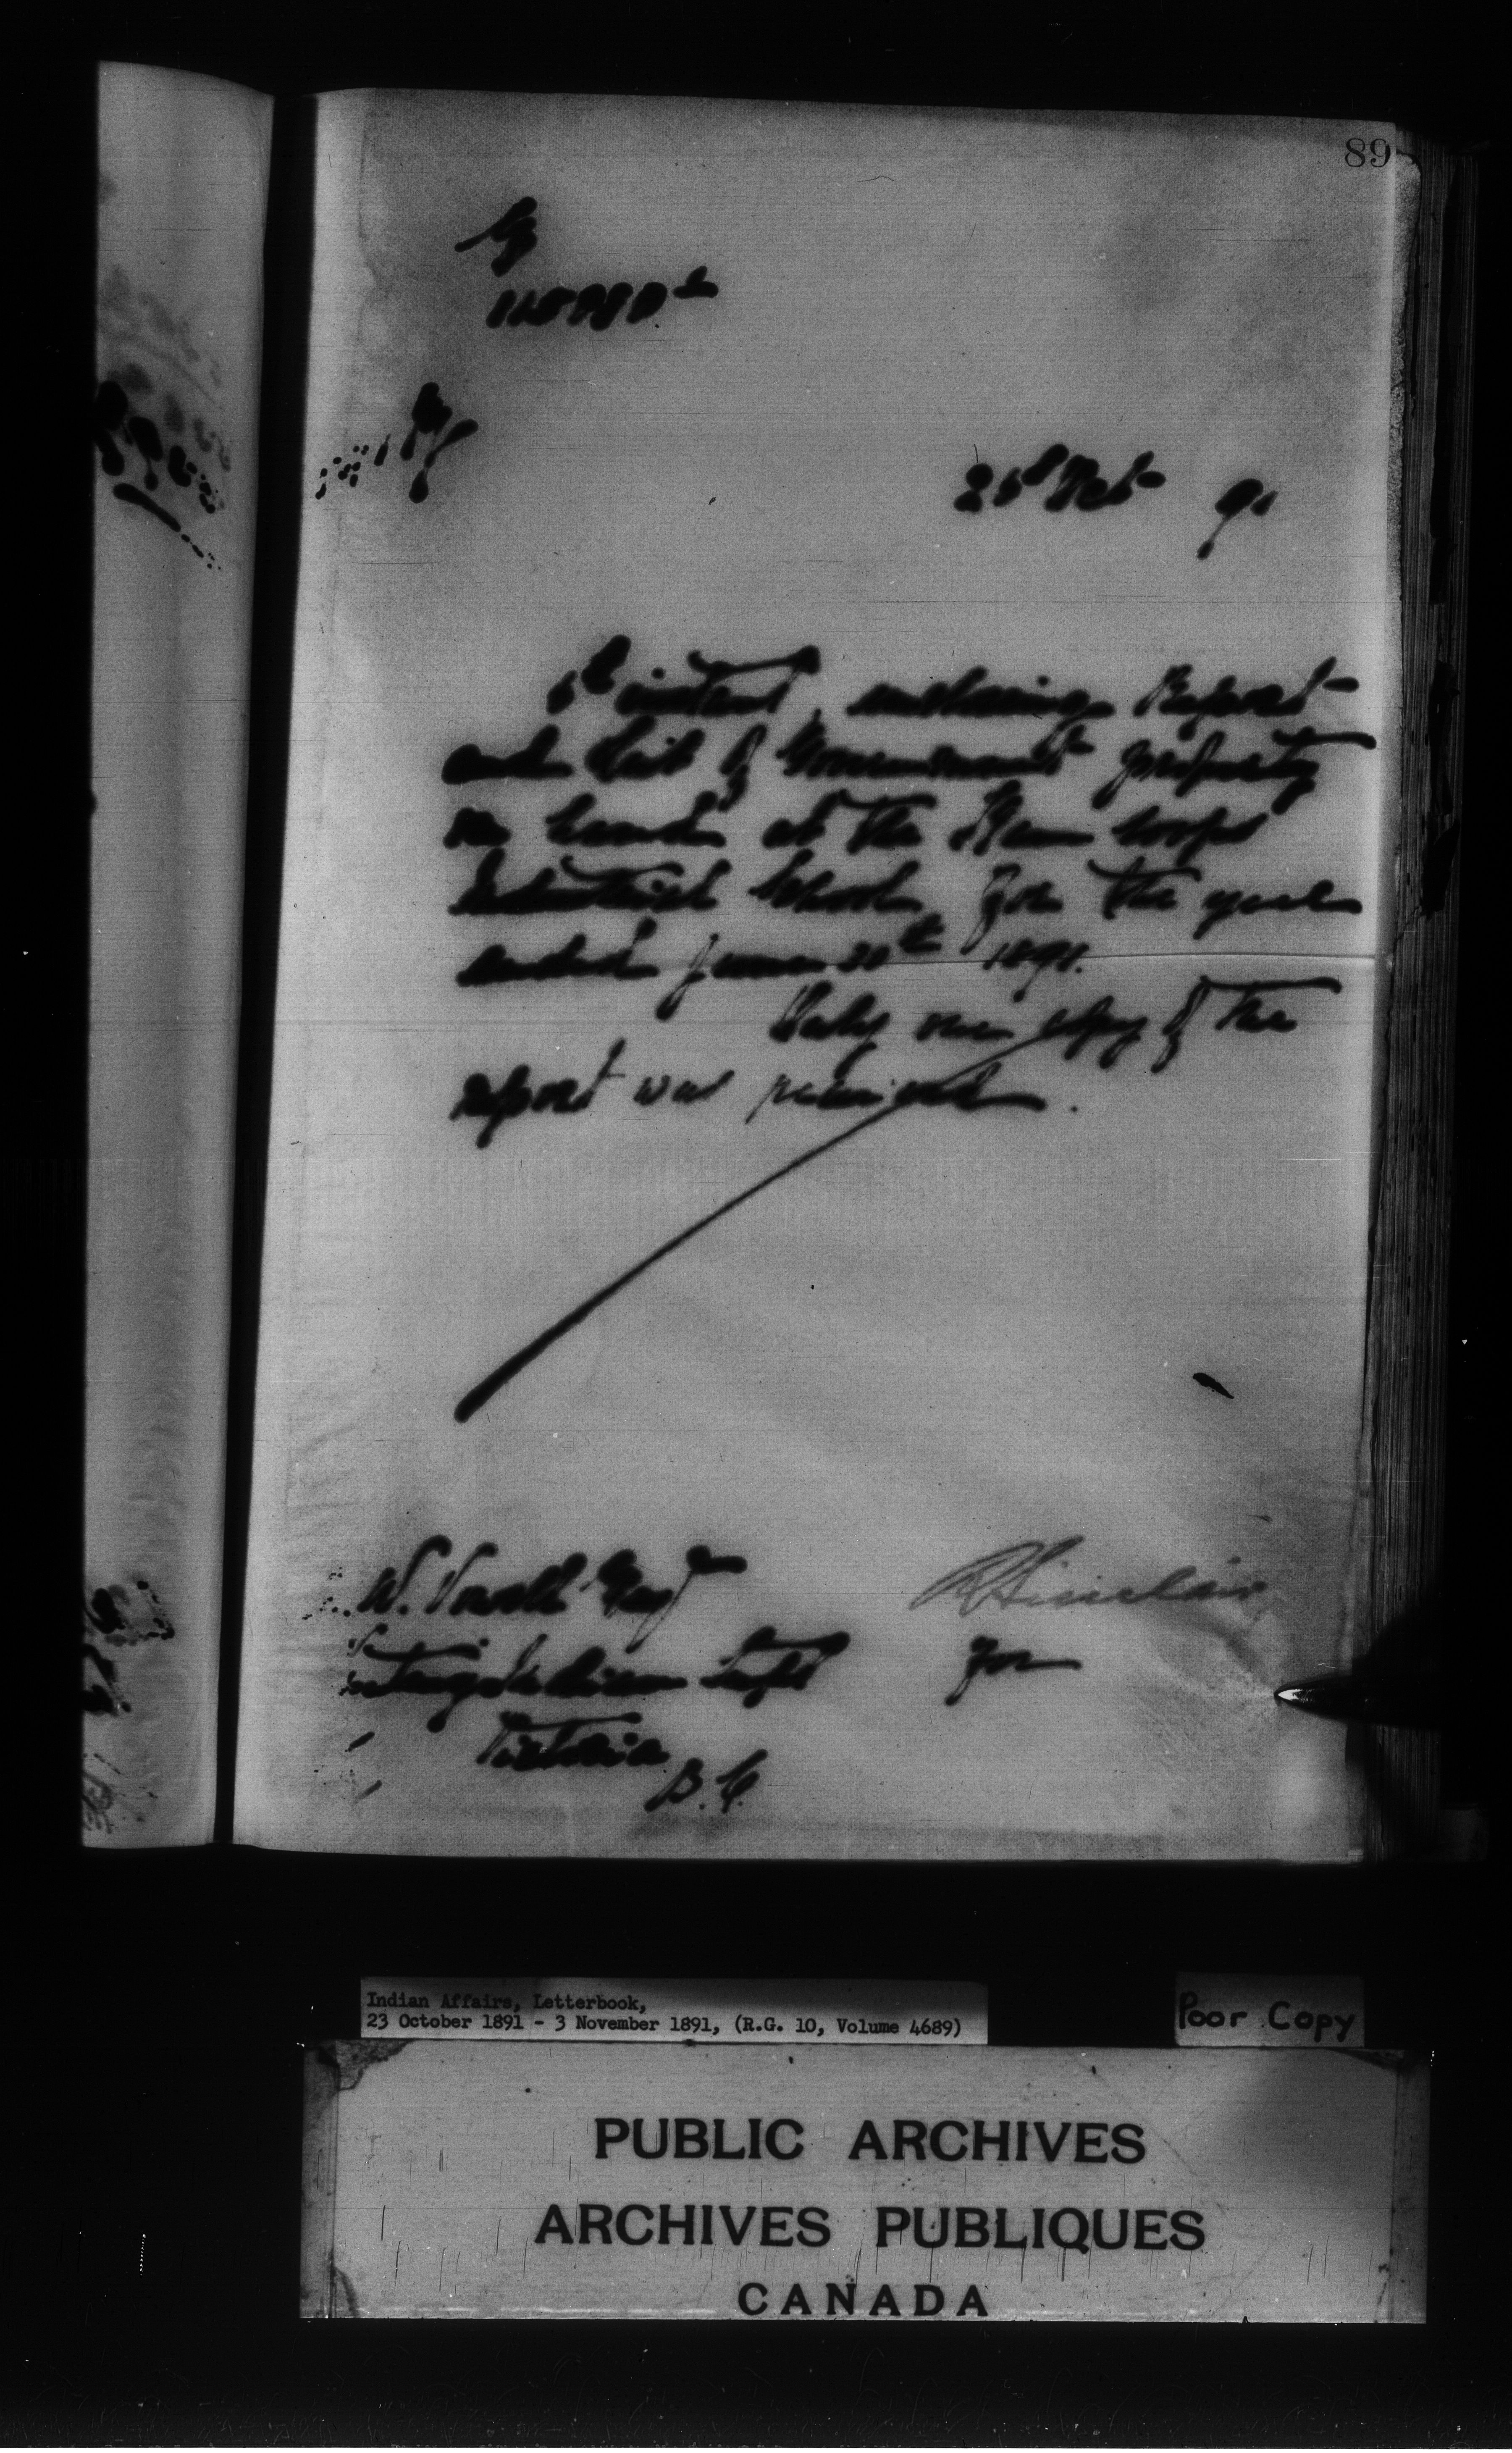 89
Oct 91
instant, enclosing Report
and list of Government property
on hand at the Kamloops
Industrial School for the year
ended June 30th 1891.
Only one copy of the
report was received.
W. Vowell Esqr
R Sinclair
Indian Supt for
Victoria
B.C.
Indian Affairs, Letterbook,
23 October 1891 - 3 November 1891, (R.G. 10, Volume 4689)
Poor Copy
PUBLIC ARCHIVES
ARCHIVES PUBLIQUES
CANADA